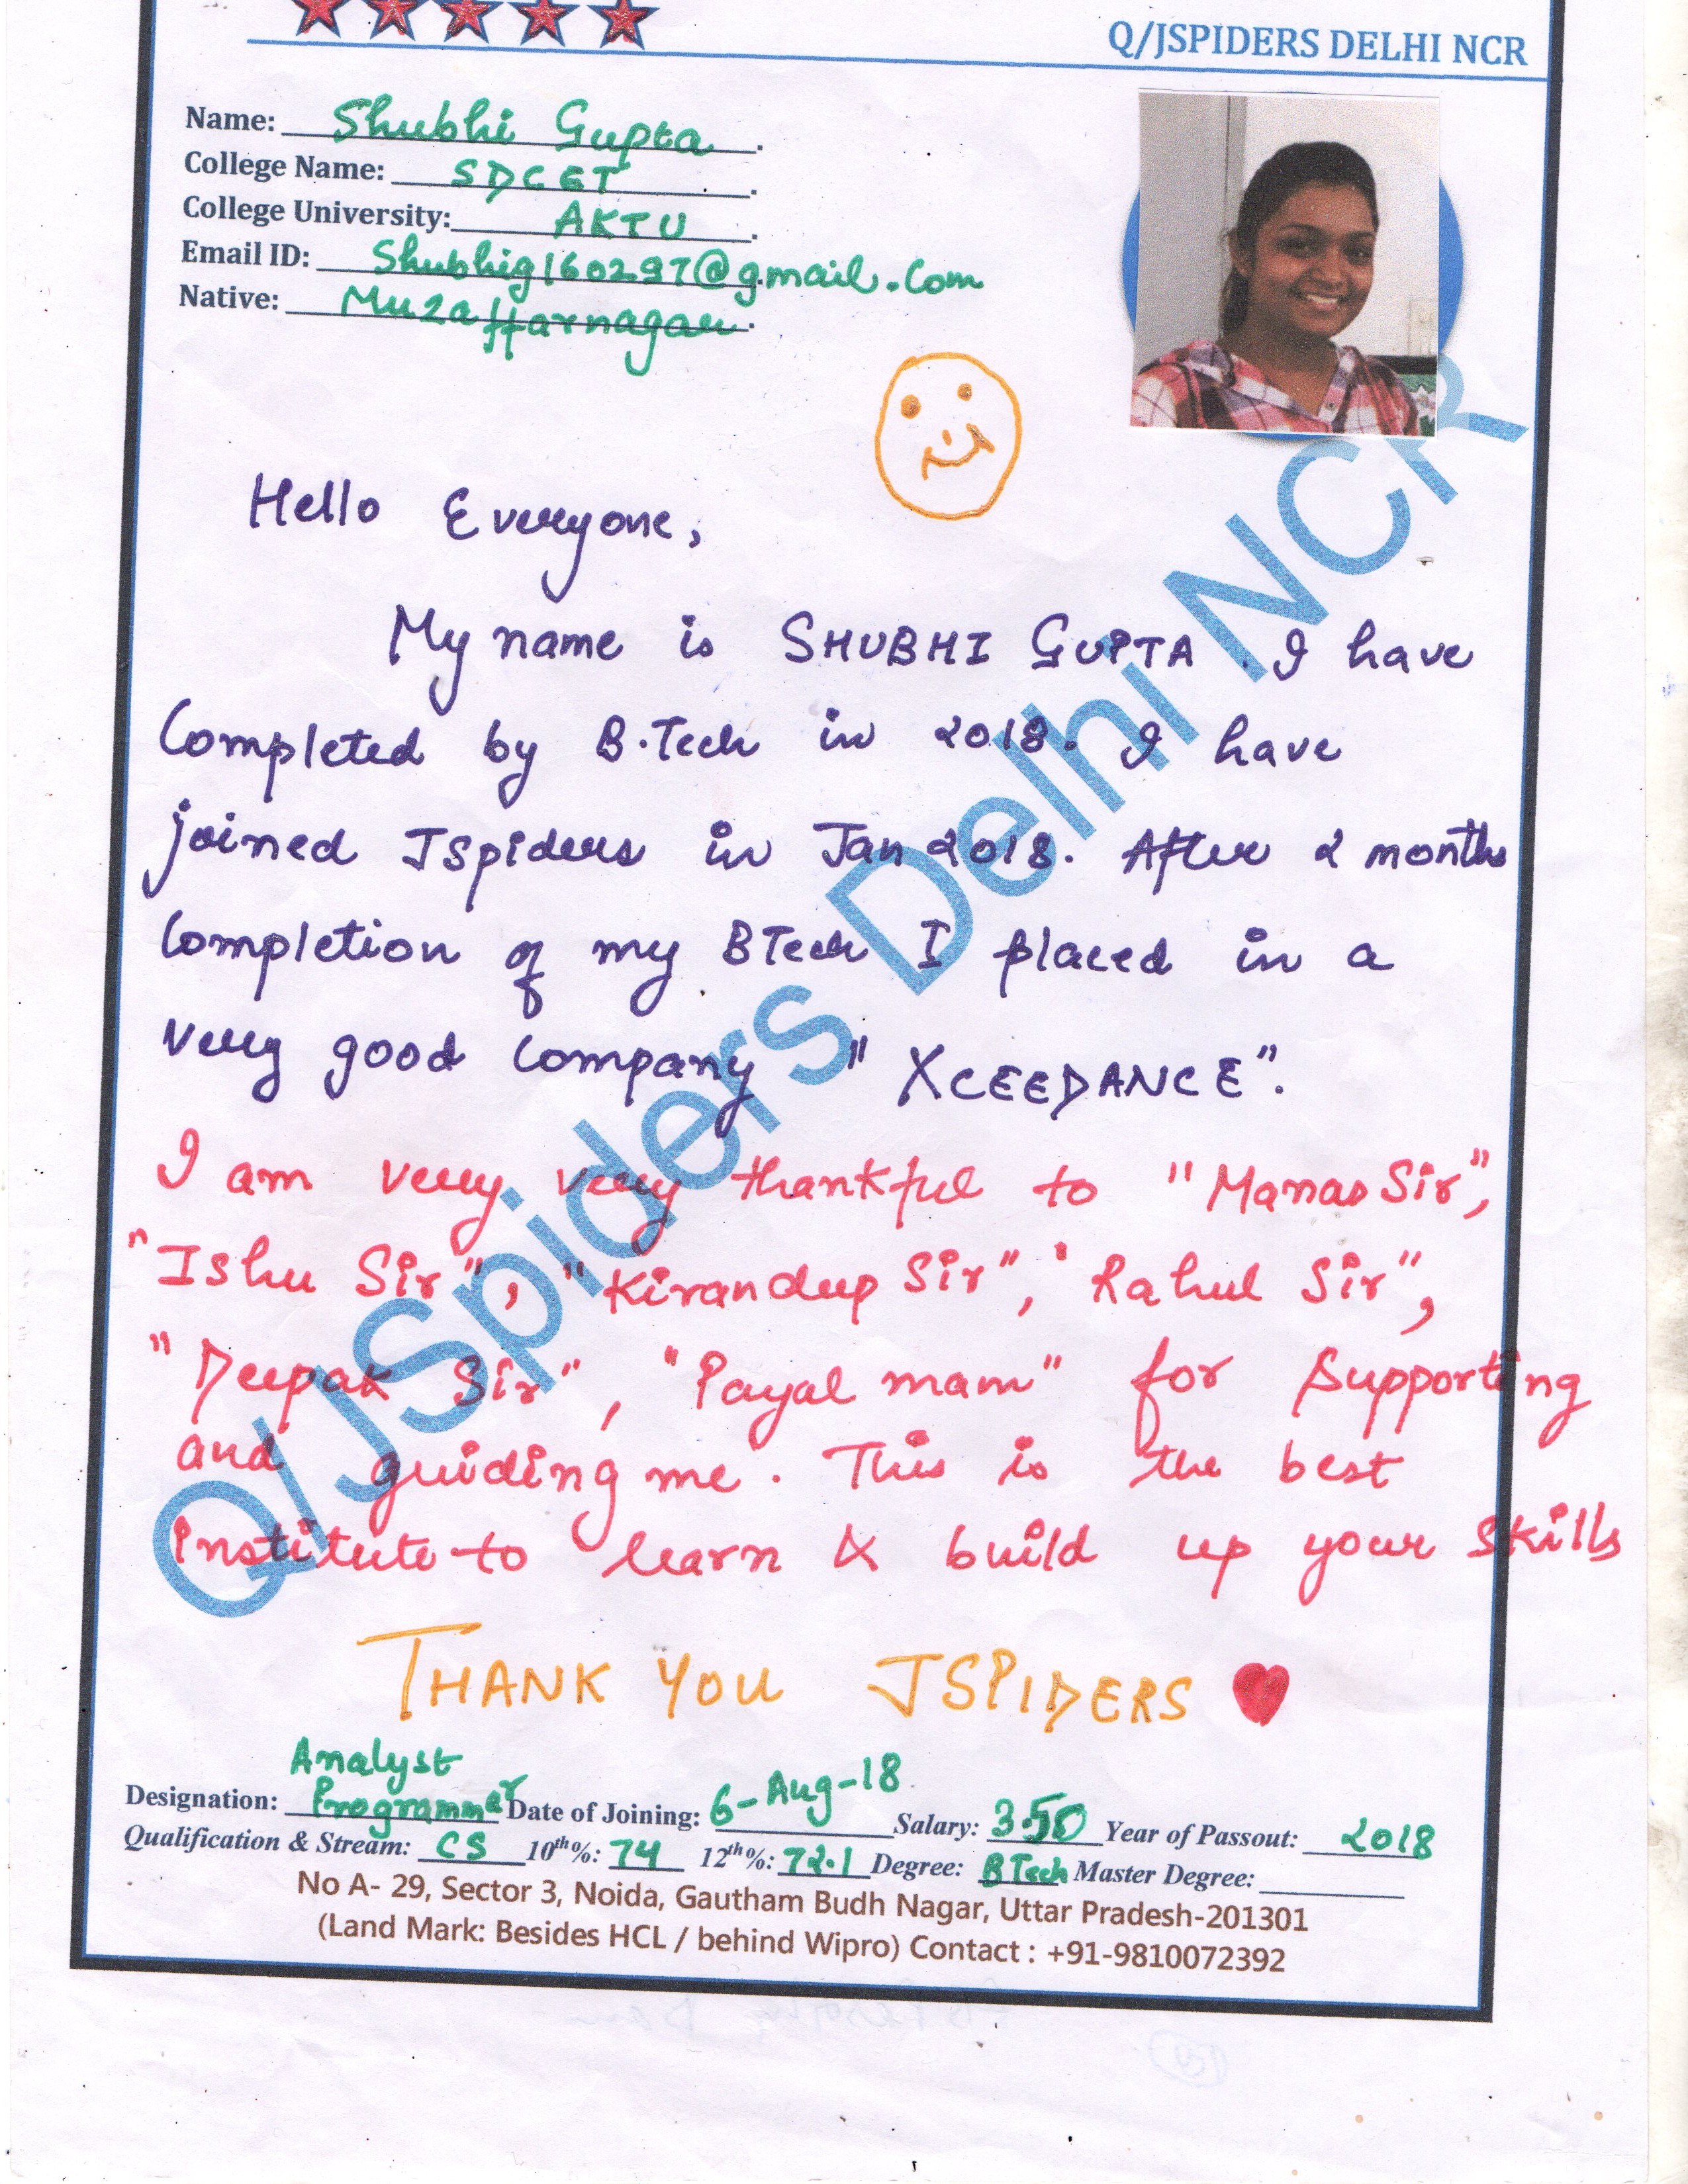 Q/JSPIDERS DELHI NCR
Name: Shubhi Gupta.
College Name: SDCET.
College University: AKTU.
Email ID: Shubhig160297@gmail.com
Native: Muzaffarnagar.
Hello Everyone,
My name is SHUBHI GUPTA. I have
Completed by B.Tech in 2018. I have
joined JSpiders in Jan 2018. After 2 months
Completion of my BTech I placed in a
very good Company "XCEEDANCE".
I am very very thankful to "Manas Sir",
"Ishu Sir", "Kirandeep Sir", 'Rahul Sir",
"Deepak Sir", "Payal mam" for Supporting
and guiding me. This is the best
institute to learn & build up your skills
THANK YOU JSPIDERS
Q/JSpiders Delhi NCR
Analyst
Designation: Programmar Date of Joining: 6-Aug-18 Salary: 3.50 Year of Passout: 2018
Qualification & Stream: CS 10th%: 74 12th%: 72.1 Degree: BTech Master Degree:
No A- 29, Sector 3, Noida, Gautham Budh Nagar, Uttar Pradesh-201301
(Land Mark: Besides HCL / behind Wipro) Contact : +91-9810072392